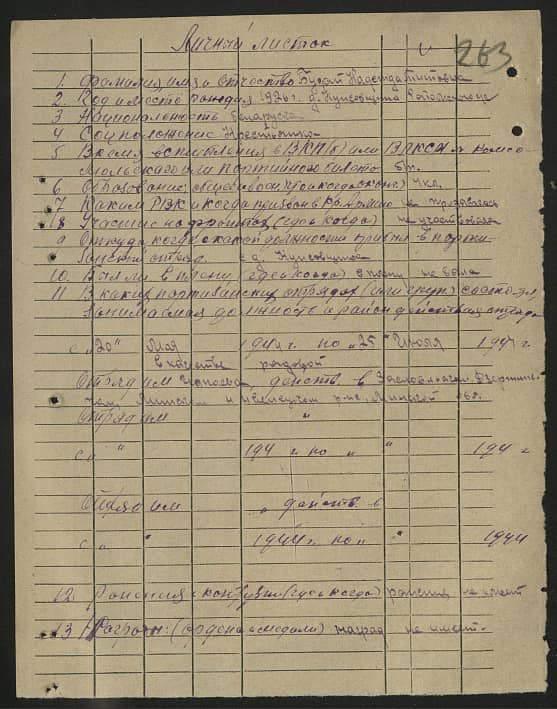 Личный листок
263
1. Фамилия, имя и отчество Надежда Титовна
2. Год и место рождения 1926 г. д.
3 Национальность беларуска
4 Соц положение Крестьянка
5 Время вступления в ВКП(б) или ВЛКСМ № комсо-
мольского или партийного билета б/п.
6 Образование общее и военное (при каком) 4 кл.
7 Каким РВК и когда призван в Кр. Армию не призывалась
8 Участие на фронтах (где и когда) не участвовала
9 Откуда, когда и какой должности прибыл в парти-
занский отряд с д.
10. Был ли в плену, (где и когда) в плену не была
11 В каких партизанских отрядах (или групп) состоял,
Занимаемая должность и район действия отряда
с „20" Мая 194 г. по „25" Июля 194 г
в качестве рядовой
Отряд им Чапаева, действ. в Заславльском, Дзержинс-
ком, Минском и р-не, Минской обл.
Отряд им "
с „ " 194 г по „ " 194 г
Отряд им „ действ в
с „ " 1944 г. по „ " 1944
12. Ранения и контузии (где и когда) ранений не имеет
13 Наград: (ордена и медали) наград не имеет.